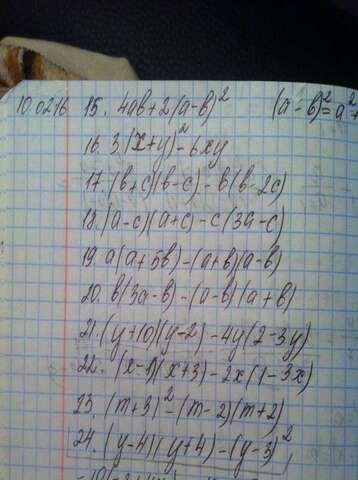 10.0216 15. 4ab+2(a-b)² (a-b)²=a²+
16. 3(x+y)²-6xy
17. (b+c)(b-c)-b(b-2c)
18. (a-c)(a+c)-c(3a-c)
19 a(a+5b)-(a+b)(a-b)
20. b(3a-b)-(a-b)(a+b)
21. (y+10)(y-2)-4y(2-3y)
22. (x-1)(x+3)-2x(1-3x)
23. (m+3)²-(m-2)(m+2)
24. (y-4)(y+4)-(y-3)²